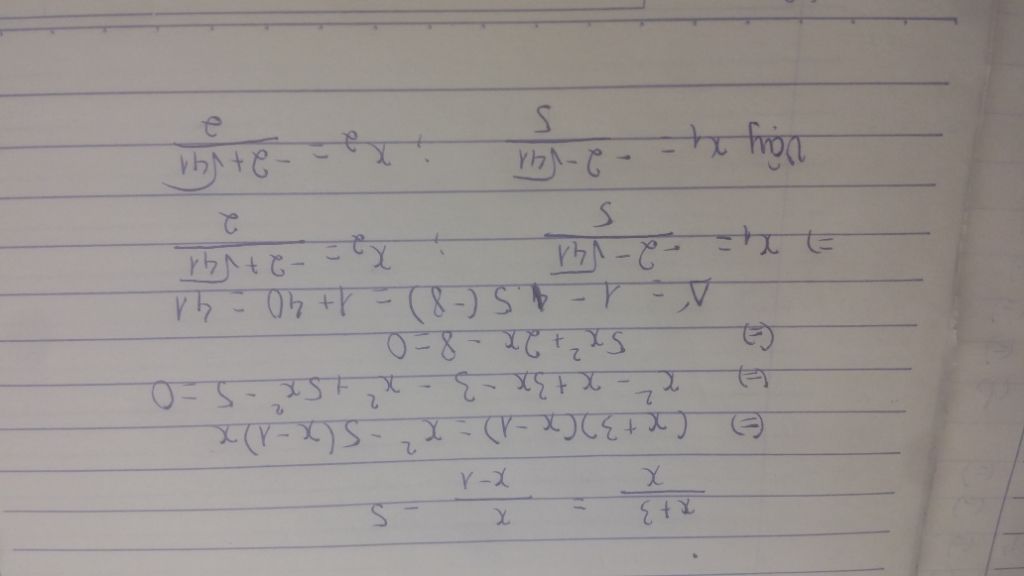 x+3/x = x/x-1 - 5
(=) (x+3)(x-1) = x² - 5(x-1)x
(=) x² - x + 3x - 3 - x² + 5x² - 5 = 0
(=) 5x² + 2x - 8 = 0
Δ' = 1 - 5(-8) = 1 + 40 = 41
=> x₁ = -2-√41/5 ; x₂ = -2+√41/2
Vậy x₁ = -2-√41/5 ; x₂ = -2+√41/2